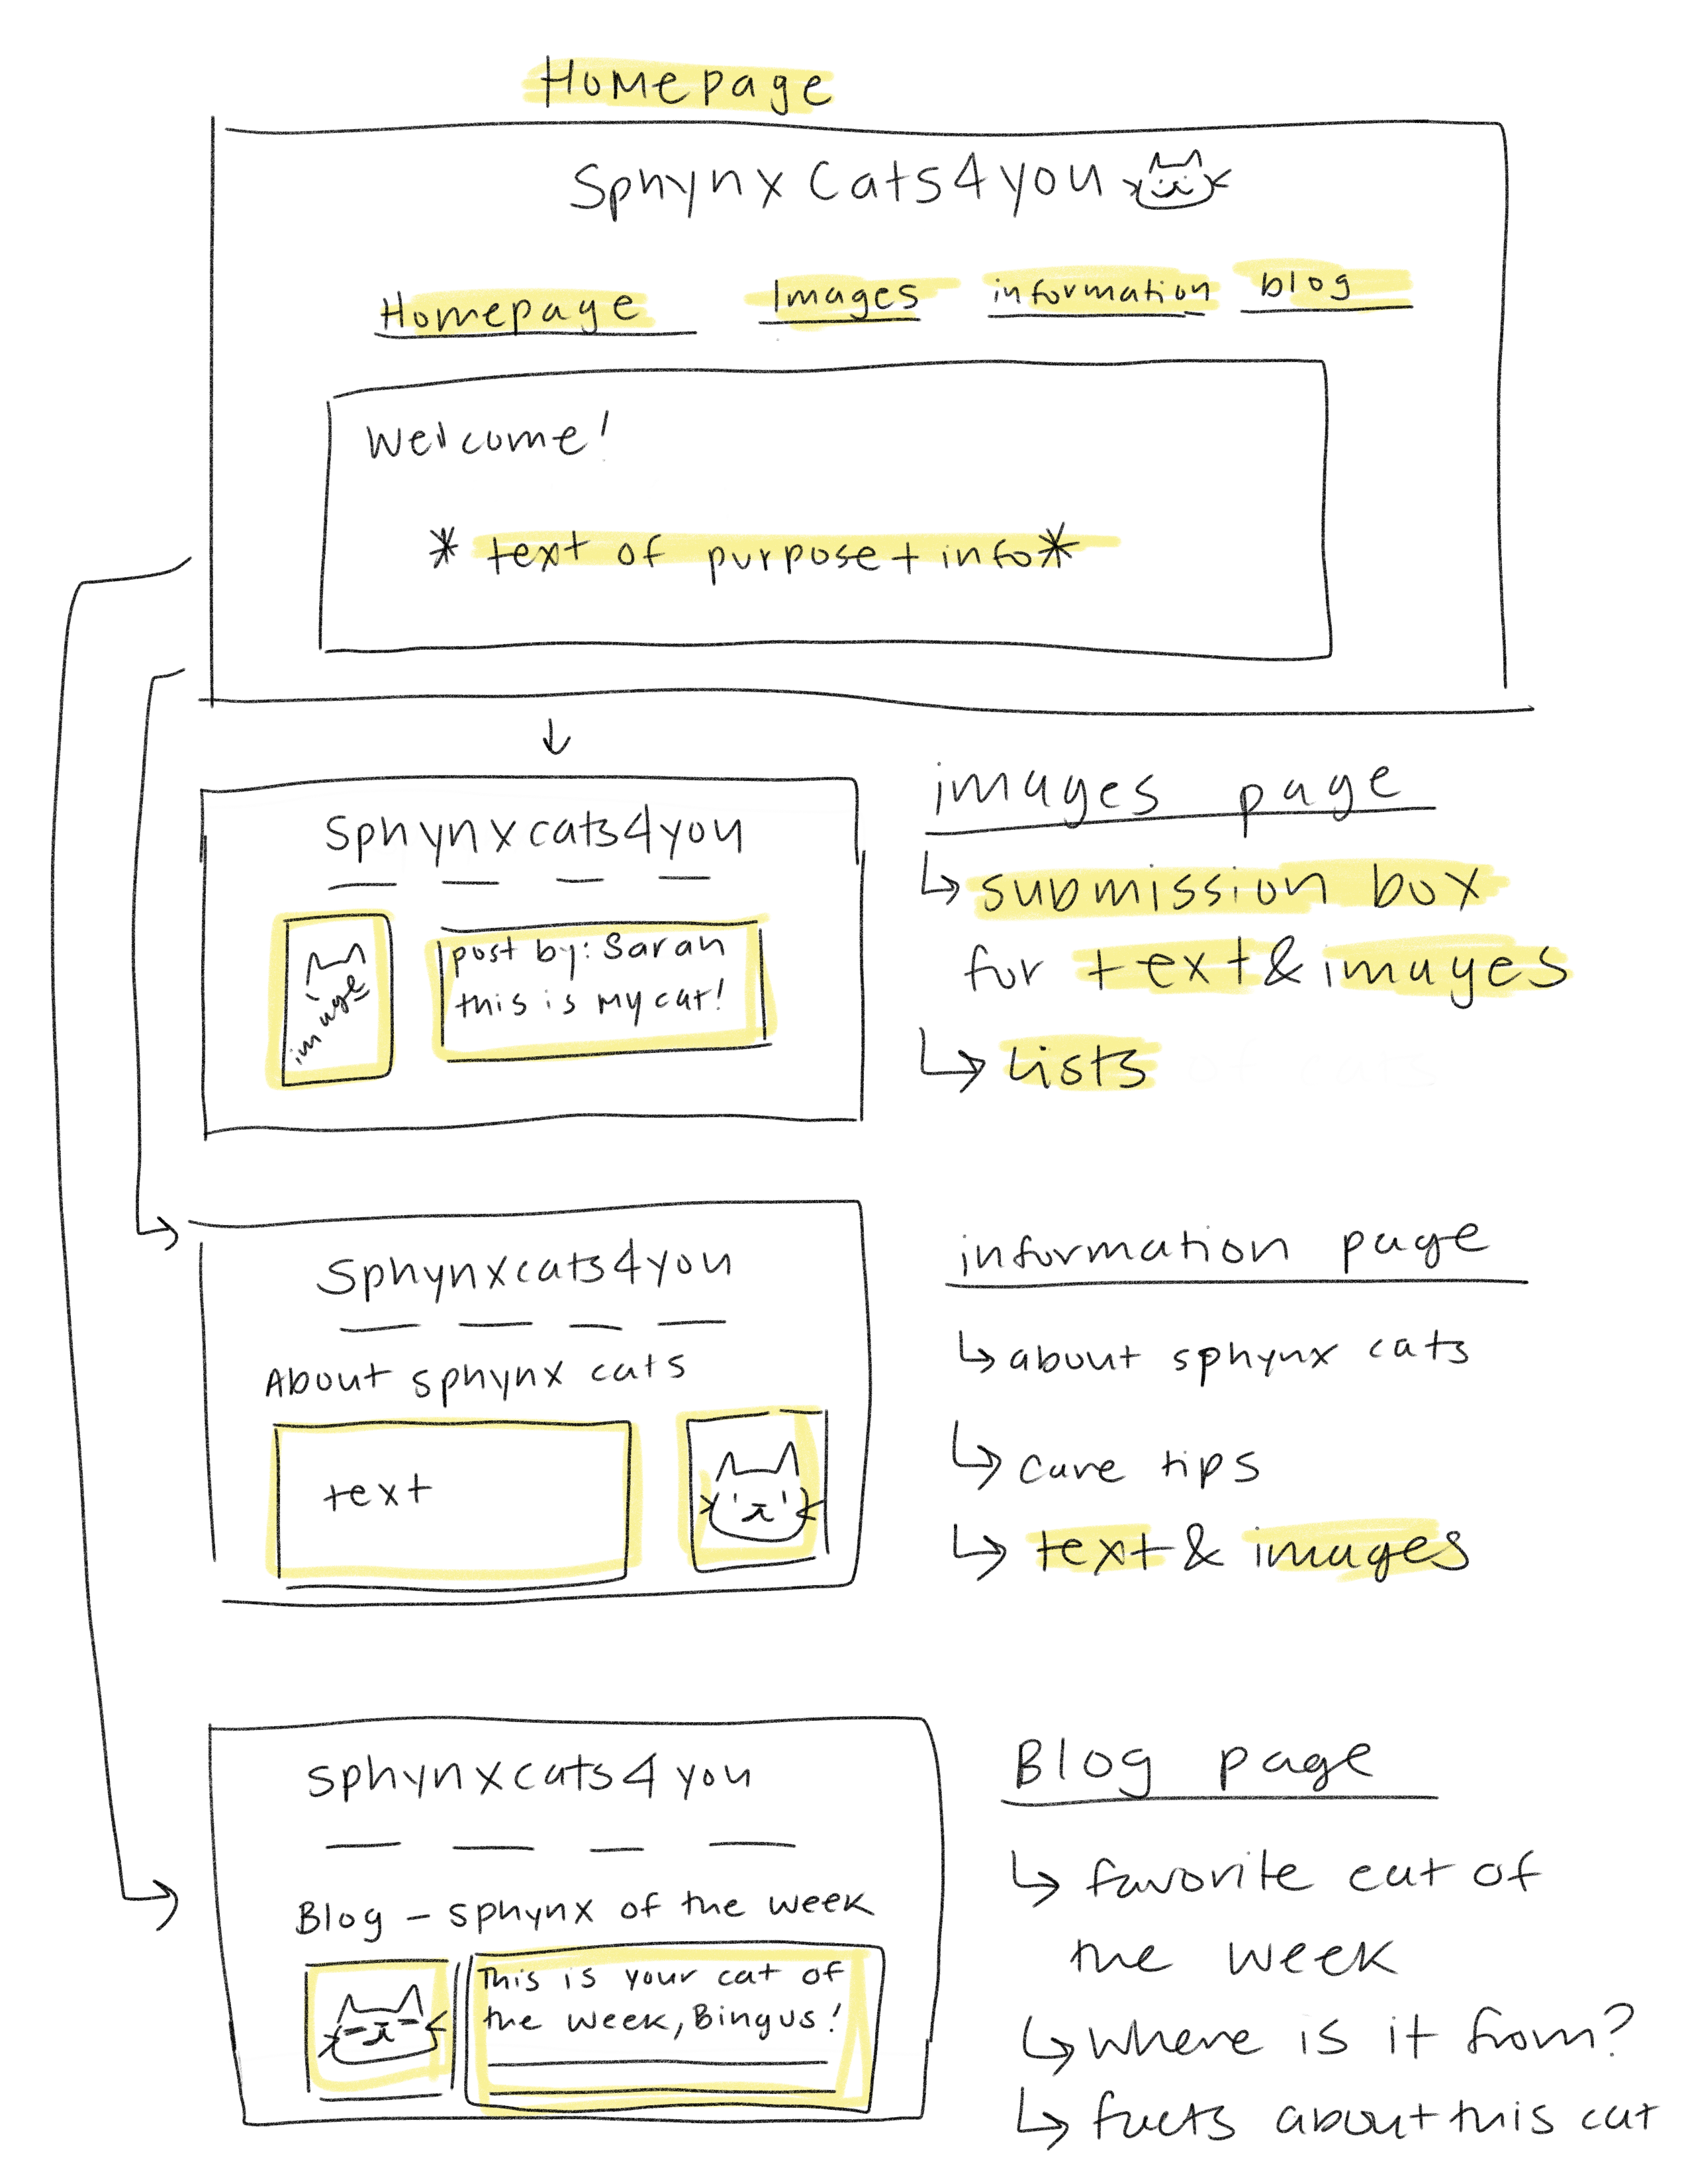 Homepage
Sphynx Cats4you
Homepage Images information blog
Welcome!
* text of purpose + info *
sphynxcats4you
image
post by: Sarah
this is my cat!
images page
↳ submission box
for text & images
↳ Lists
sphynxcats4you
About sphynx cats
text
information page
↳ about sphynx cats
↳ care tips
↳ text & images
sphynxcats4you
Blog - sphynx of the week
This is your cat of
the week, Bingus!
Blog page
↳ favorite cat of
the week
↳ where is it from?
↳ facts about this cat